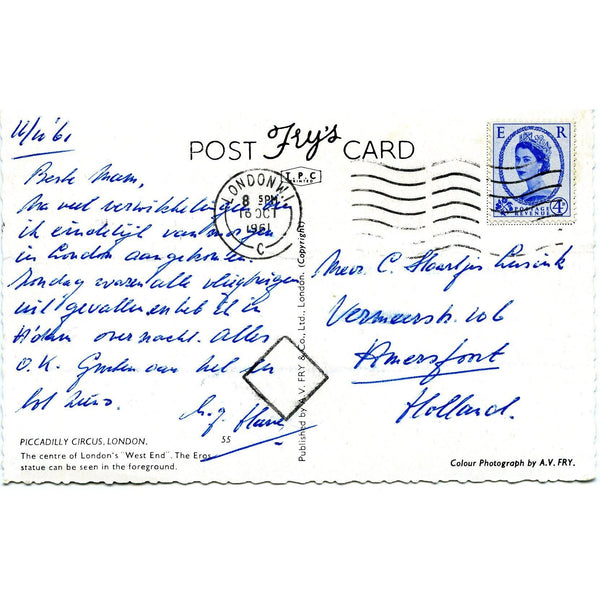 16/10 '61
POST Fry's CARD
Beste Mam,
Na veel verwikkelingen ben
ik eindelijk vanmorgen
in London aangekomen.
Zondag waren alle vliegtuigen
uitgevallen en heb ik in
A'dam overnacht. Alles
O.K. Groeten aan het en
tot ziens
PICCADILLY CIRCUS, LONDON. 55
The centre of London's "West End". The Eros
statue can be seen in the foreground.
Published by A.V. FRY & Co., Ltd., London. (Copyright)
T.P.C
LONDON W.
8 PM
16 OCT
1961
C
E R
POSTAGE
REVENUE
4D
Mevr. C.
Vermeerstr. 106
Amersfoort
Holland.
Colour Photograph by A.V. FRY.